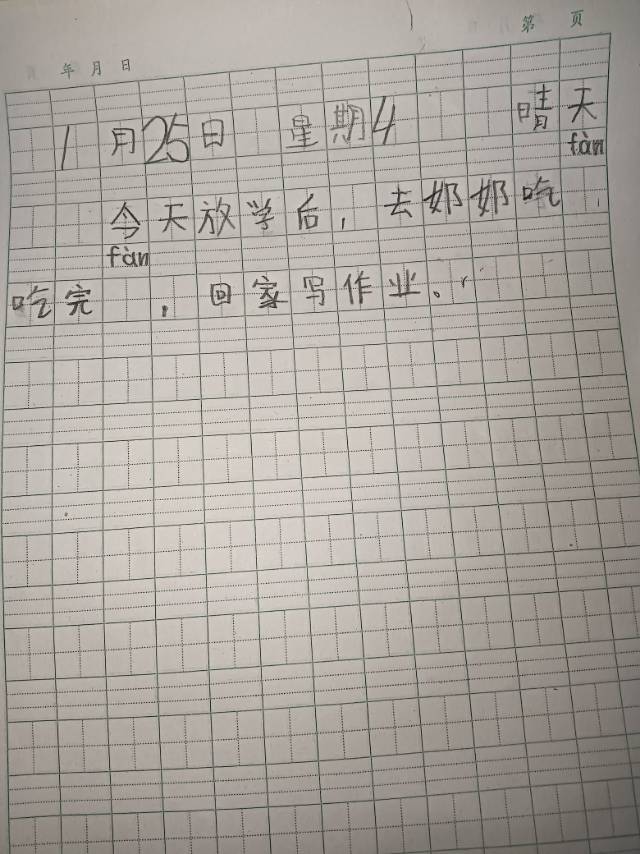 年 月 日 第 页
1月25日 星期4 晴天
今天放学后，去奶奶吃fàn，
吃完fàn，回家写作业。